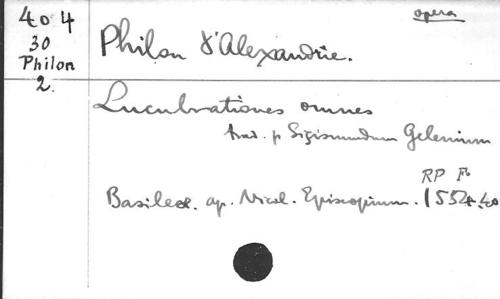 404
30
Philon
2.
opera
Philon d'Alexandrie.
Lucubrationes omnes
trad. p Sigismundum Gelenium
RP Fo
Basileæ. ap. Nicol. Episcopium. 1554. 40